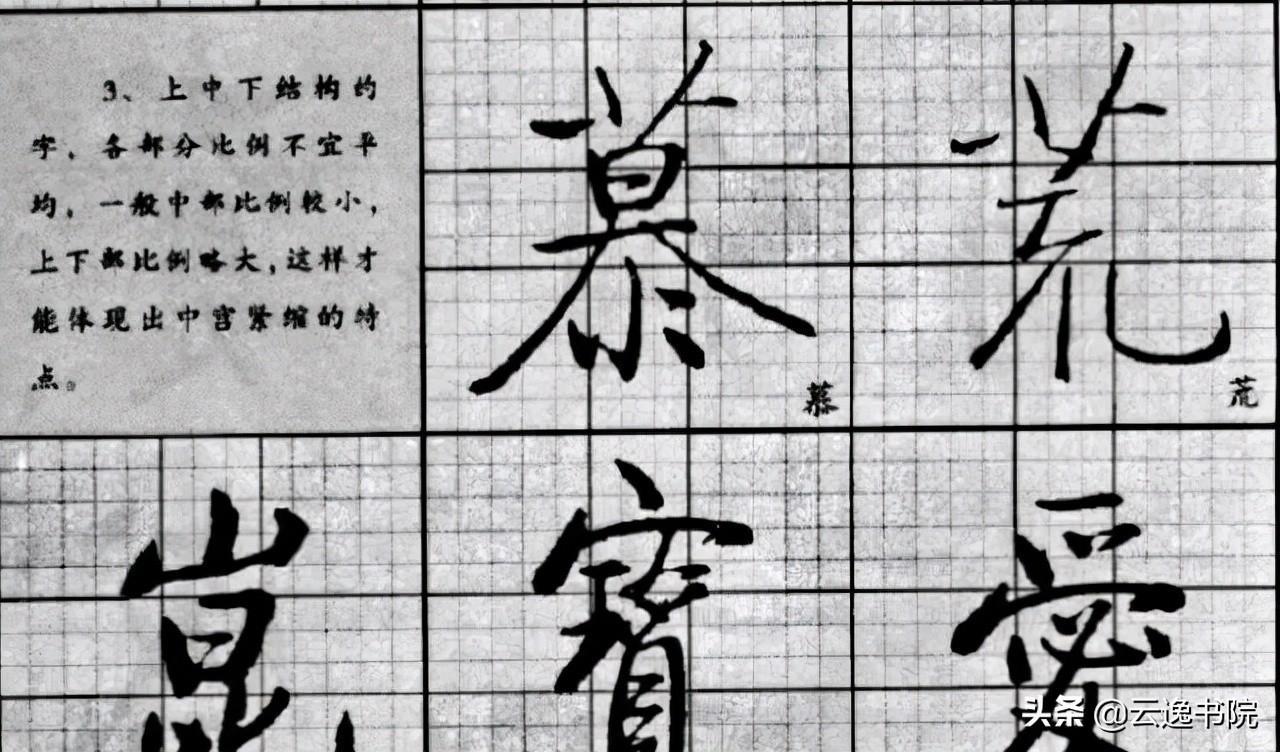 3、上中下结构的
字，各部分比例不宜平
均，一般中部比例较小，
上下部比例略大，这样才
能体现出中宫紧缩的特
点。
慕 荒
慕 荒
崑 寶 愛
头条 @云逸书院